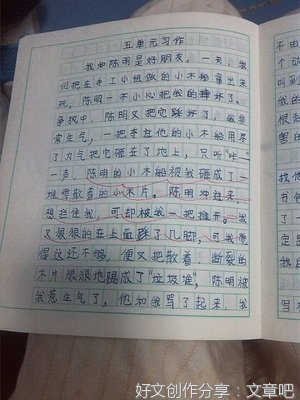 五单元习作
我和陈明是好朋友。一天，我
们把在手工小组做的小木船拿出来
玩，陈明一不小心把我的摔坏了。
争执中，陈明又把它踩坏了，我非
常生气，一把夺过他的小木船用尽
了力气把它砸在了地上，只听“咔”
一声，陈明的小木船被我砸成了一
堆零散着的小木片。陈明冲赶来，
想拦住我，可却被我一把推开。我
又狠狠的在上面踩了几脚，可我便
得这还不够，便又把散着、断裂的
木片狠狠地踢成了“垃圾堆”，陈明被
我惹生气了，他和我骂了起来，我
不由
个
动
写
好文创作分享：文章吧